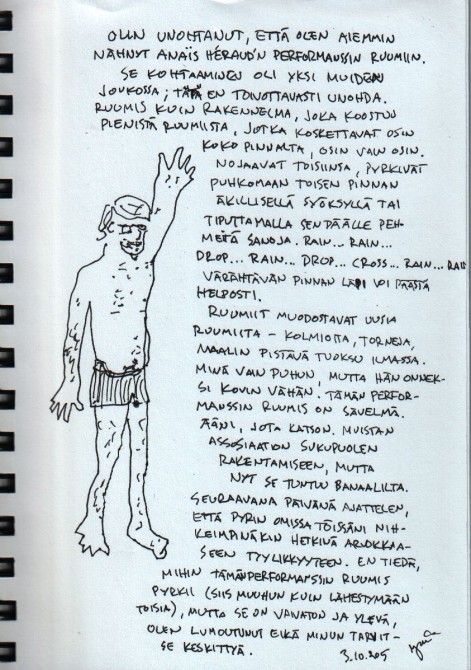 OLIN UNOHTANUT, ETTÄ OLEN AIEMMIN
NÄHNYT ANAÏS HÉRAUD'N PERFORMANSSIN RUUMIIN.
SE KOHTAAMINEN OLI YKSI MUIDEN
JOUKOSSA; TÄTÄ EN TOIVOTTAVASTI UNOHDA.
RUUMIS KUIN RAKENNELMA, JOKA KOOSTUU
PIENISTÄ RUUMIISTA, JOTKA KOSKETTAVAT OSIN
KOKO PINNALTA, OSIN VAIN OSIN.
NOJAAVAT TOISIINSA, PYRKIVÄT
PUHKOMAAN TOISEN PINNAN
ÄKILLISELLÄ SYÖKSYLLÄ TAI
TIPUTTAMALLA SEN PÄÄLLE PEH-
MEITÄ SANOJA. RAIN... RAIN...
DROP... RAIN... DROP... CROSS... RAIN... RAIN
VÄRÄHTÄVÄN PINNAN LÄPI VOI PÄÄSTÄ
HELPOSTI.
RUUMIIT MUODOSTAVAT UUSIA
RUUMIITA – KOLMIOITA, TORNEJA,
MAALIN PISTÄVÄ TUOKSU ILMASSA.
MINÄ VAIN PUHUN, MUTTA HÄN ONNEK-
SI KOVIN VÄHÄN. TÄMÄN PERFOR-
MANSSIN RUUMIS ON SÄVELMÄ.
ÄÄNI, JOTA KATSON. MUISTAN
ASSOSIAATION SUKUPUOLEN
RAKENTAMISEEN, MUTTA
NYT SE TUNTUU BANAALILTA.
SEURAAVANA PÄIVÄNÄ AJATTELEN,
ETTÄ PYRIN OMISSA TÖISSÄNI NIH-
KEIMPINÄKIN HETKINÄ ARVOKKAA-
SEEN TYYLIKKYYTEEN. EN TIEDÄ,
MIHIN TÄMÄN PERFORMANSSIN RUUMIS
PYRKII (SIIS MUUHUN KUIN LÄHESTYMÄÄN
TOISIA), MUTTA SE ON VAIVATON JA YLEVÄ,
OLEN LUMOUTUNUT EIKÄ MINUN TARVIT-
SE KESKITTYÄ.
3.10.205